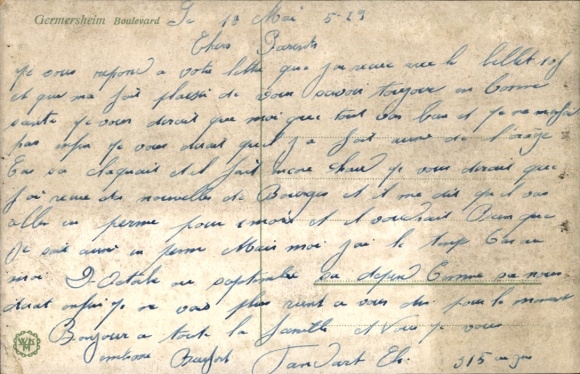 Germersheim Boulevard
Le 13 Mai 5-29
Chers Parents
Je vous repond a votre lettre que j'ai recue avec le billet 10f
et que ma fait plaisir de vous savoir toujour en bonne
sante je vous dirait que moi que tout vas bien et je ne
pas enfin je vous dirait qu'il y a fait aussi de l'orage
sa claquait et il fait encore chaud je vous dirait que
j'ai recue des nouvelles de Bourges et il me dit qu'il vas
aller en perme pour 1 mois et il voudrait bien que
je soit aussi en perme Mais moi j'ai le temp
moi D'Octobre ou septembre sa depend comme sa nous
dirat enfin je ne vois plus rient a vous dire pour le moment
Bonjour a toute la famille et Vous je vous
embrasse bien fort Tandart Eh. 315 au jus